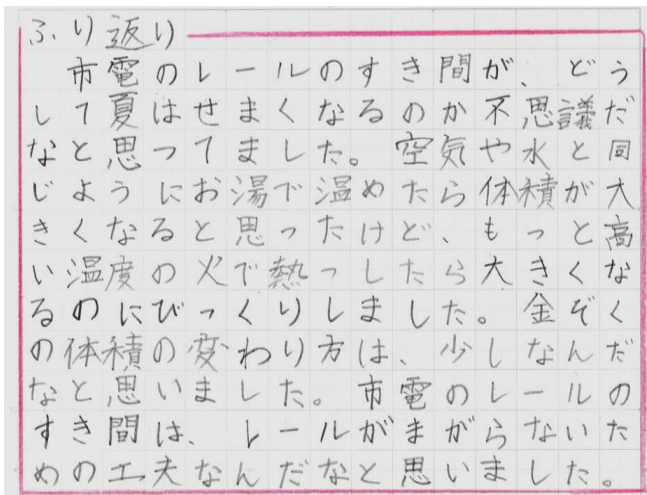 ふり返り
市電のレールのすき間が、どう
して夏はせまくなるのか不思議だ
なと思ってました。空気や水と同
じようにお湯で温めたら体積が大
きくなると思ったけど、もっと高
い温度の火で熱っしたら大きくな
るのにびっくりしました。金ぞく
の体積の変わり方は、少しなんだ
なと思いました。市電のレールの
すき間は、レールがまがらないた
めの工夫なんだなと思いました。